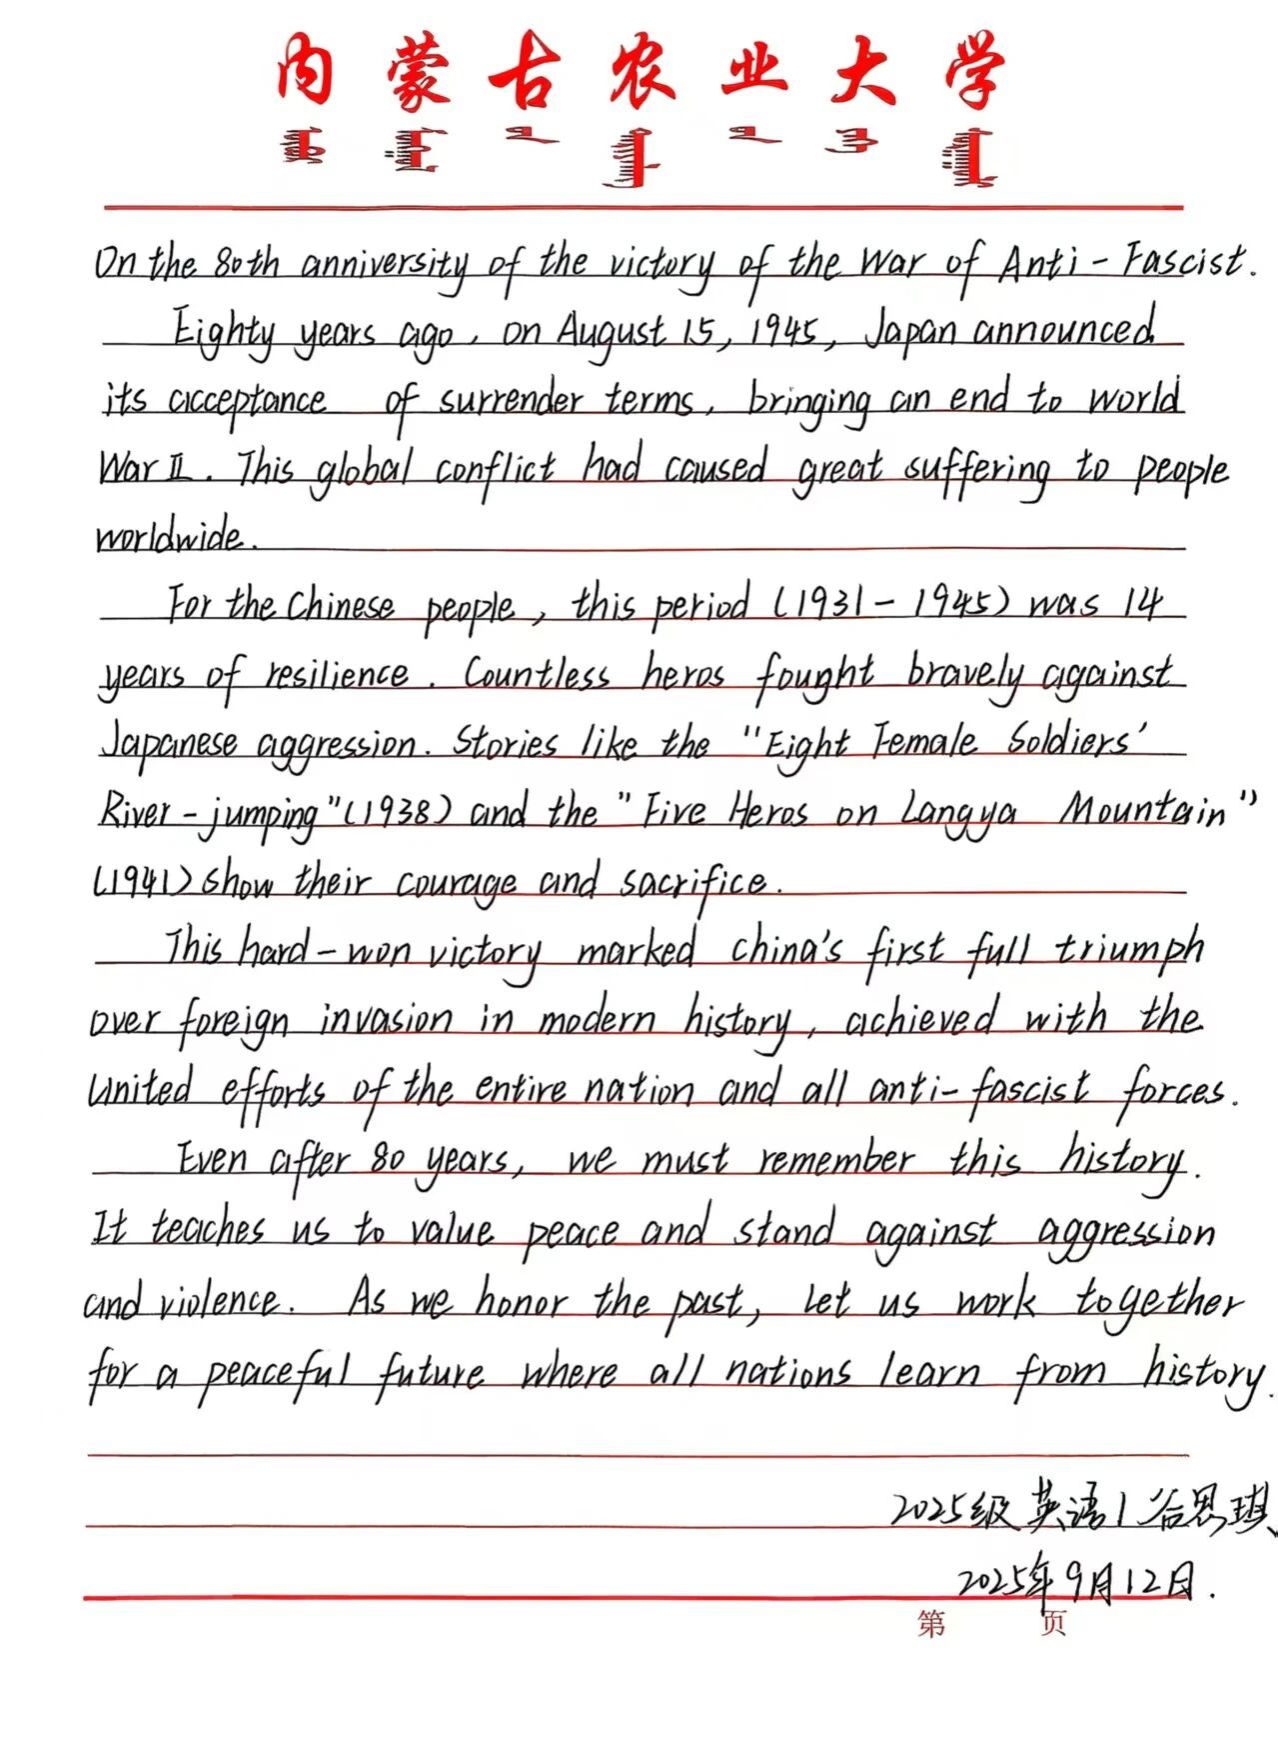 内蒙古农业大学
On the 80th anniversity of the victory of the War of Anti-Fascist.
Eighty years ago, on August 15, 1945, Japan announced
its acceptance of surrender terms, bringing an end to world
War Ⅱ. This global conflict had caused great suffering to people
worldwide.
For the Chinese people, this period (1931-1945) was 14
years of resilience. Countless heros fought bravely against
Japanese aggression. Stories like the "Eight Female Soldiers'
River-jumping"(1938) and the "Five Heros on Langya Mountain"
(1941) show their courage and sacrifice.
This hard-won victory marked china's first full triumph
over foreign invasion in modern history, achieved with the
united efforts of the entire nation and all anti-fascist forces.
Even after 80 years, we must remember this history.
It teaches us to value peace and stand against aggression
and violence. As we honor the past, let us work together
for a peaceful future where all nations learn from history.
2025级英语1谷思琪
2025年9月12日.
第 页